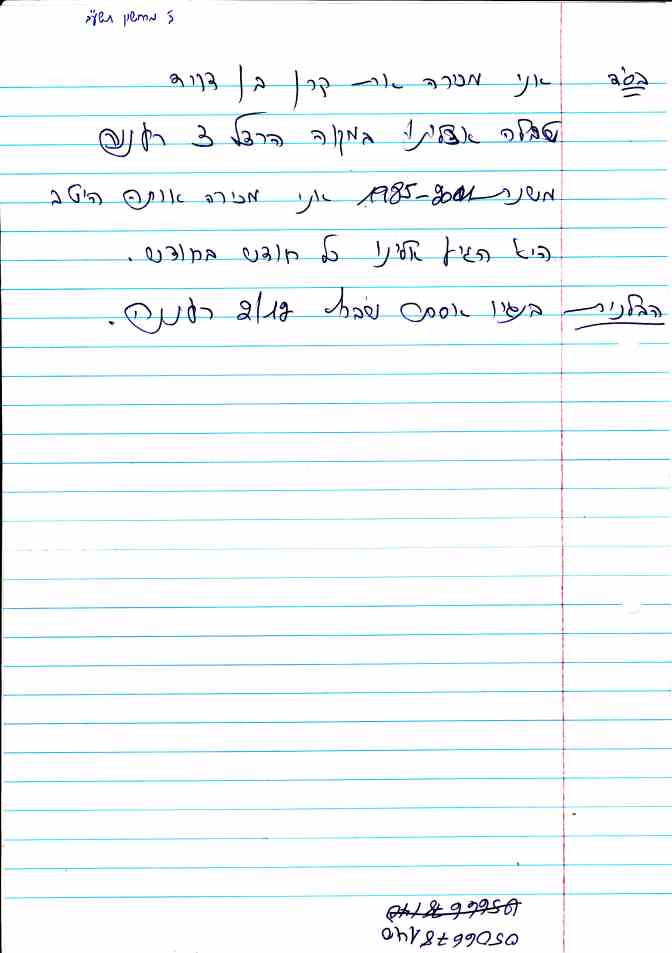 ז מרחשון תשע"ב
בס"ד אני מכירה את קרן בן דויד
שטבלה אצלינו במקוה הרצל 3 רעננה
משנת 1985-2001 אני מכירה אותה היטב
היא הגיע אלינו כל חודש בחודש.
הבלנית 2/12 רעננה.
0506678140